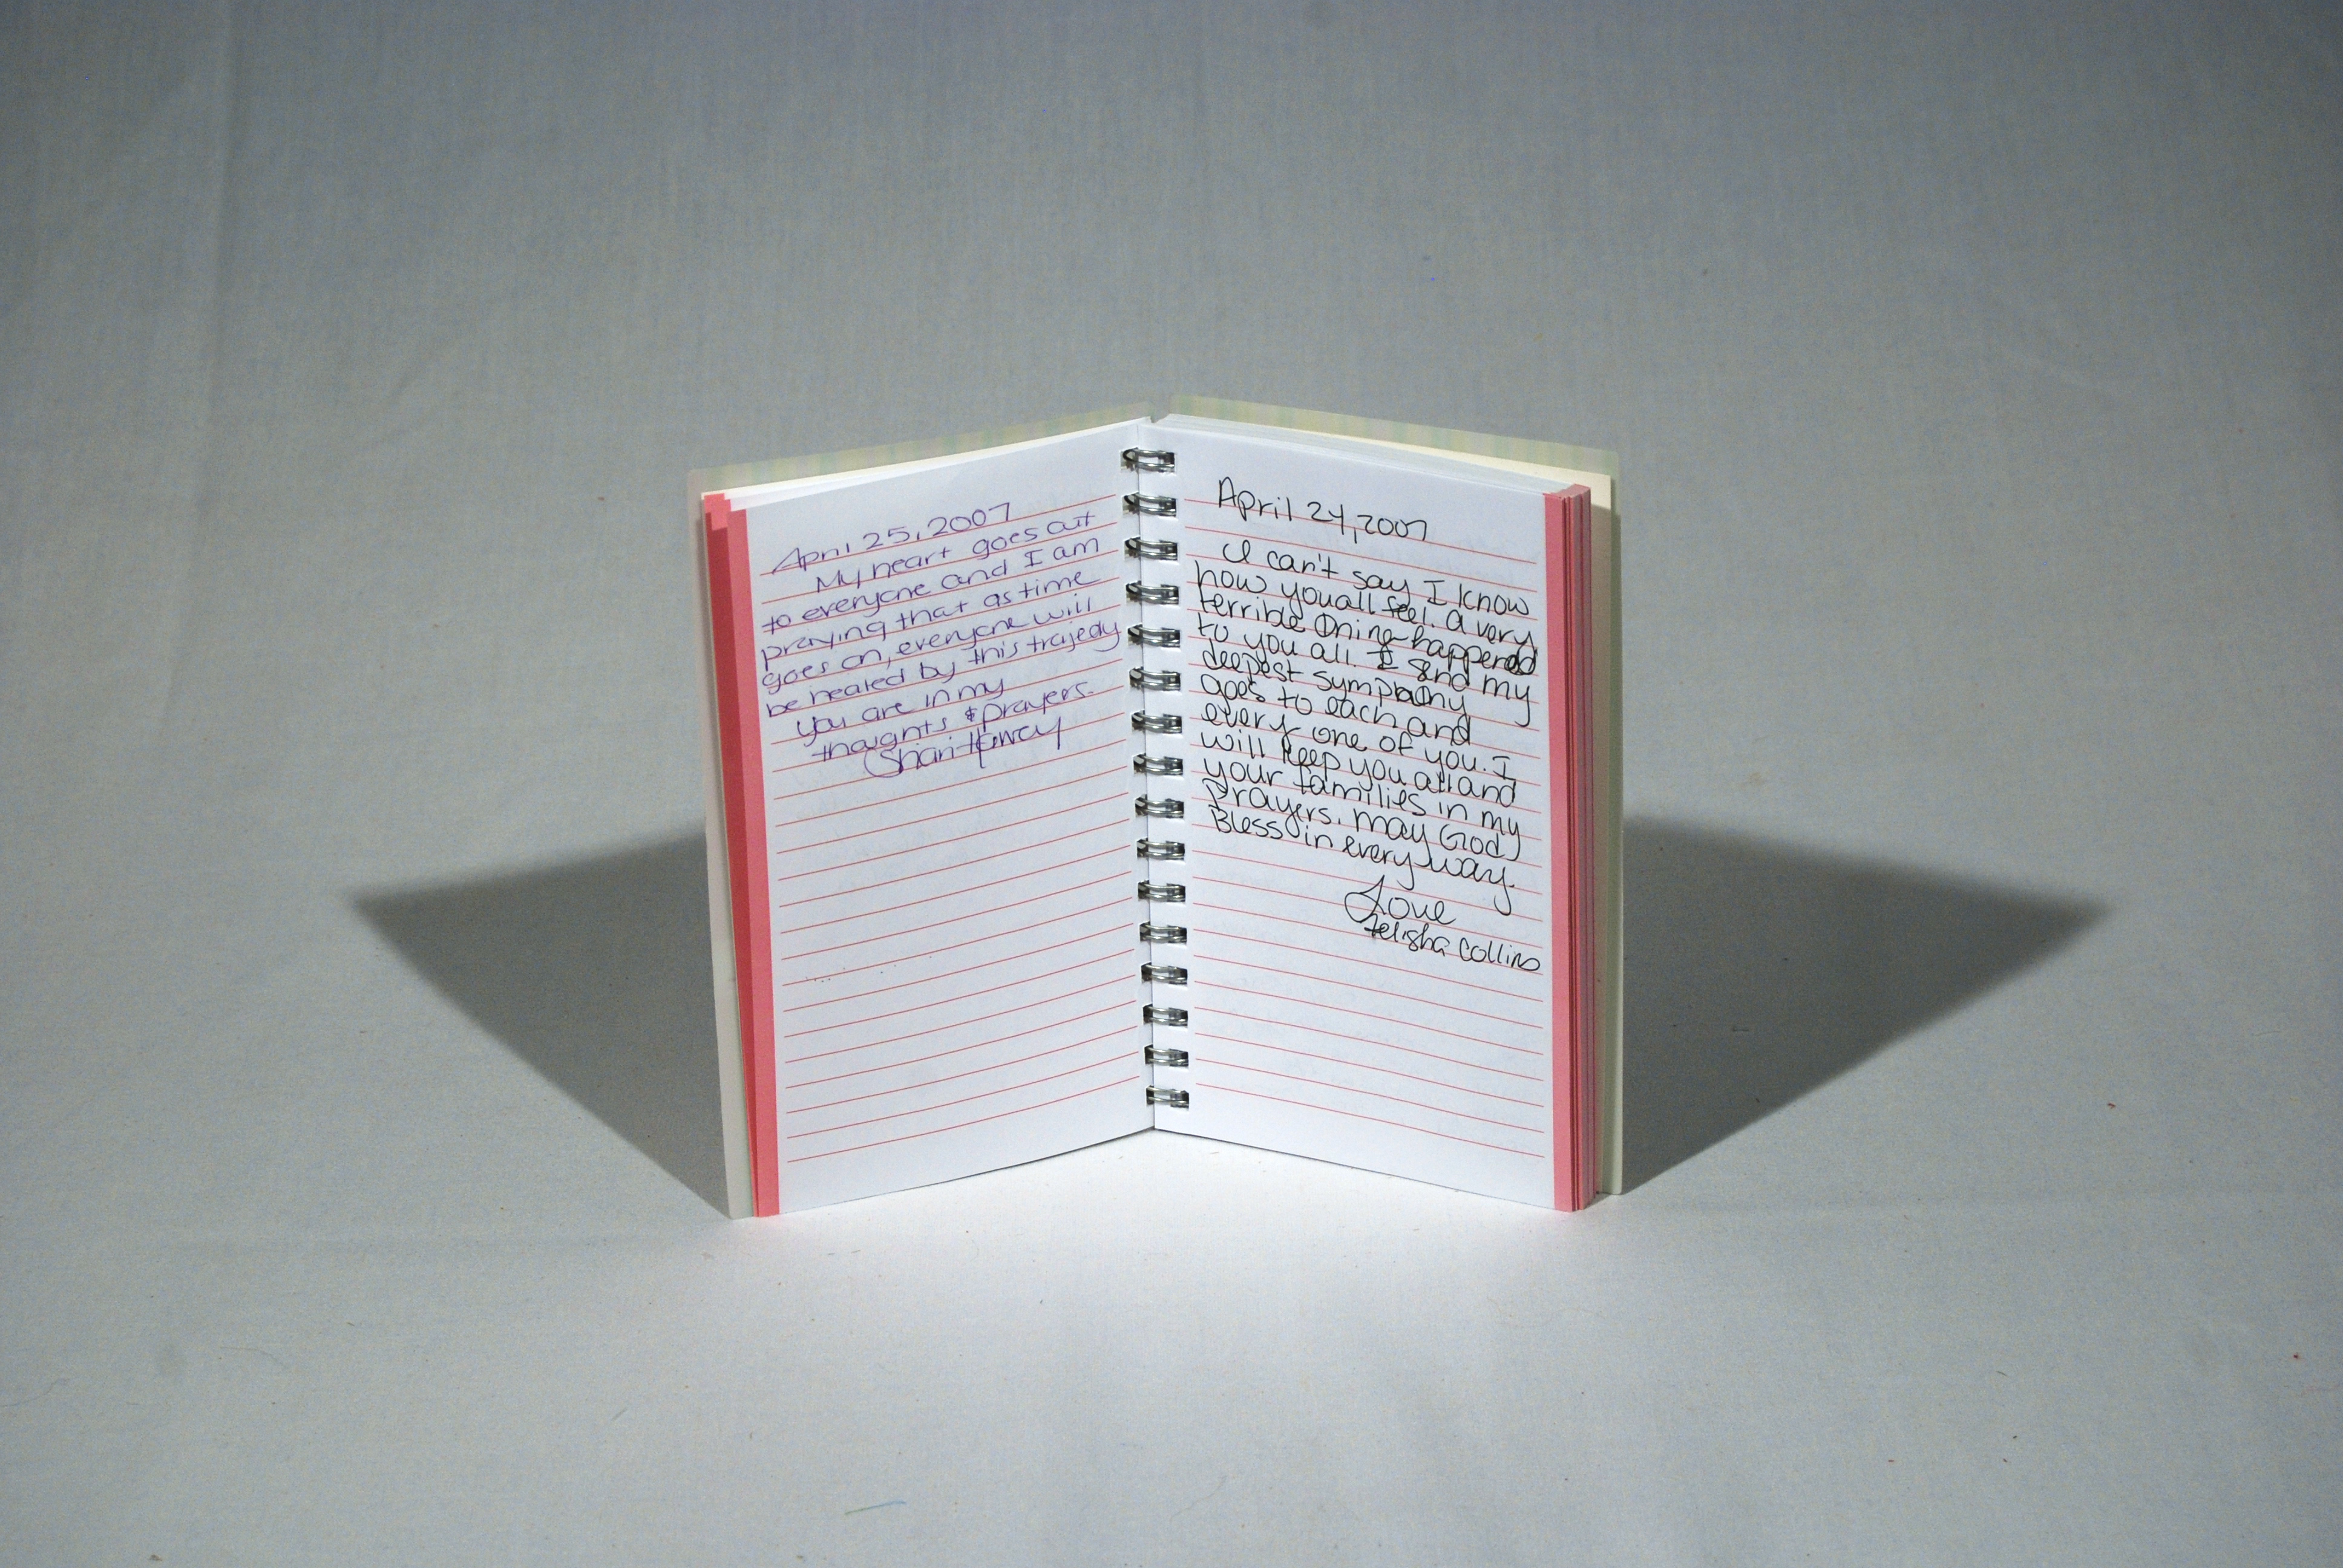 April 25, 2007
My heart goes out
to everyone and I am
praying that as time
goes on, everyone will
be healed by this trajedy
you are in my
thoughts & prayers.
Shari
April 24, 2007
I can't say I know
how you all feel. a very
terrible thing happened
to you all. I send my
deepest sympathy
goes to each and
every one of you. I
will keep you all and
your families in my
prayers. may God
Bless in every way.
Love
Telisha Collins